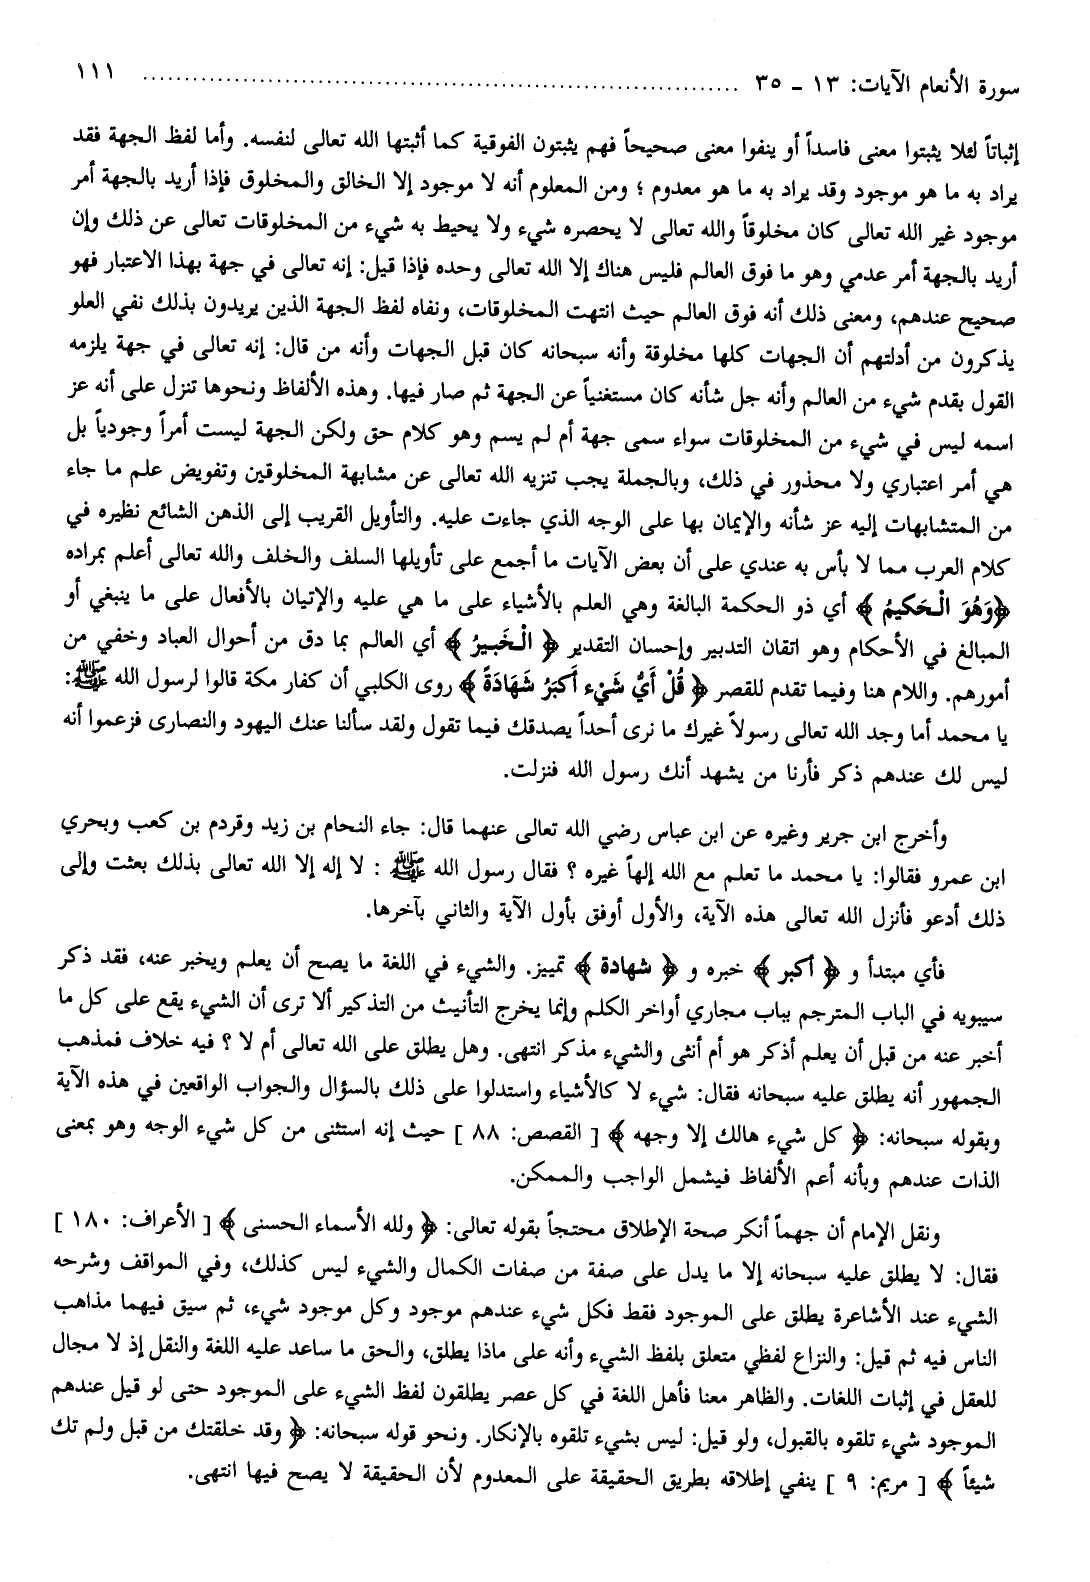 سورة الأنعام الآيات: ١٣ ـ ٣٥ ........................................................................ ١١١
إثباتاً لئلا يثبتوا معنى فاسداً أو ينفوا معنى صحيحاً فهم يثبتون الفوقية كما أثبتها الله تعالى لنفسه. وأما لفظ الجهة فقد
يراد به ما هو موجود وقد يراد به ما هو معدوم ؛ ومن المعلوم أنه لا موجود إلا الخالق والمخلوق فإذا أريد بالجهة أمر
موجود غير الله تعالى كان مخلوقاً والله تعالى لا يحصره شيء ولا يحيط به شيء من المخلوقات تعالى عن ذلك وإن
أريد بالجهة أمر عدمي وهو ما فوق العالم فليس هناك إلا الله تعالى وحده فإذا قيل: إنه تعالى في جهة بهذا الاعتبار فهو
صحيح عندهم، ومعنى ذلك أنه فوق العالم حيث انتهت المخلوقات، ونفاه لفظ الجهة الذين يريدون بذلك نفي العلو
يذكرون من أدلتهم أن الجهات كلها مخلوقة وأنه سبحانه كان قبل الجهات وأنه من قال: إنه تعالى في جهة يلزمه
القول بقدم شيء من العالم وأنه جل شأنه كان مستغنياً عن الجهة ثم صار فيها. وهذه الألفاظ ونحوها تنزل على أنه عز
اسمه ليس في شيء من المخلوقات سواء سمى جهة أم لم يسم وهو كلام حق ولكن الجهة ليست أمراً وجودياً بل
هي أمر اعتباري ولا محذور في ذلك، وبالجملة يجب تنزيه الله تعالى عن مشابهة المخلوقين وتفويض علم ما جاء
من المتشابهات إليه عز شأنه والإيمان بها على الوجه الذي جاءت عليه. والتأويل القريب إلى الذهن الشائع نظيره في
كلام العرب مما لا بأس به عندي على أن بعض الآيات ما أجمع على تأويلها السلف والخلف والله تعالى أعلم بمراده
﴿وَهُوَ الْحَكيمُ ﴾ أي ذو الحكمة البالغة وهي العلم بالأشياء على ما هي عليه والإتيان بالأفعال على ما ينبغي أو
المبالغ في الأحكام وهو اتقان التدبير وإحسان التقدير ﴿ الْخَبيرُ ﴾ أي العالم بما دق من أحوال العباد وخفي من
أمورهم. واللام هنا وفيما تقدم للقصر ﴿ قُلْ أَيُّ شَيْء أَكبَرُ شَهَادَةً ﴾ روى الكلبي أن كفار مكة قالوا لرسول الله ﷺ:
يا محمد أما وجد الله تعالى رسولاً غيرك ما نرى أحداً يصدقك فيما تقول ولقد سألنا عنك اليهود والنصارى فزعموا أنه
ليس لك عندهم ذكر فأرنا من يشهد أنك رسول الله فنزلت.
وأخرج ابن جرير وغيره عن ابن عباس رضي الله تعالى عنهما قال: جاء النحام بن زيد وقردم بن كعب وبحري
ابن عمرو فقالوا: يا محمد ما تعلم مع الله إلهاً غيره ؟ فقال رسول الله ﷺ : لا إله إلا الله تعالى بذلك بعثت وإلى
ذلك أدعو فأنزل الله تعالى هذه الآية، والأول أوفق بأول الآية والثاني بآخرها.
فأي مبتدأ و ﴿ أكبر ﴾ خبره و ﴿ شهادة ﴾ تمييز. والشيء في اللغة ما يصح أن يعلم ويخبر عنه، فقد ذكر
سيبويه في الباب المترجم بباب مجاري أواخر الكلم وإنما يخرج التأنيث من التذكير ألا ترى أن الشيء يقع على كل ما
أخبر عنه من قبل أن يعلم أذكر هو أم أنثى والشيء مذكر انتهى. وهل يطلق على الله تعالى أم لا ؟ فيه خلاف فمذهب
الجمهور أنه يطلق عليه سبحانه فقال: شيء لا كالأشياء واستدلوا على ذلك بالسؤال والجواب الواقعين في هذه الآية
وبقوله سبحانه: ﴿ كل شيء هالك إلا وجهه ﴾ [ القصص: ٨٨ ] حيث إنه استثنى من كل شيء الوجه وهو بمعنى
الذات عندهم وبأنه أعم الألفاظ فيشمل الواجب والممكن.
ونقل الإمام أن جهماً أنكر صحة الإطلاق محتجاً بقوله تعالى: ﴿ ولله الأسماء الحسنى ﴾ [ الأعراف: ١٨٠ ]
فقال: لا يطلق عليه سبحانه إلا ما يدل على صفة من صفات الكمال والشيء ليس كذلك، وفي المواقف وشرحه
الشيء عند الأشاعرة يطلق على الموجود فقط فكل شيء عندهم موجود وكل موجود شيء، ثم سيق فيهما مذاهب
الناس فيه ثم قيل: والنزاع لفظي متعلق بلفظ الشيء وأنه على ماذا يطلق، والحق ما ساعد عليه اللغة والنقل إذ لا مجال
للعقل في إثبات اللغات. والظاهر معنا فأهل اللغة في كل عصر يطلقون لفظ الشيء على الموجود حتى لو قيل عندهم
الموجود شيء تلقوه بالقبول، ولو قيل: ليس بشيء تلقوه بالإنكار. ونحو قوله سبحانه: ﴿ وقد خلقتك من قبل ولم تك
شيئاً ﴾ [ مريم: ٩ ] ينفي إطلاقه بطريق الحقيقة على المعدوم لأن الحقيقة لا يصح فيها انتهى.